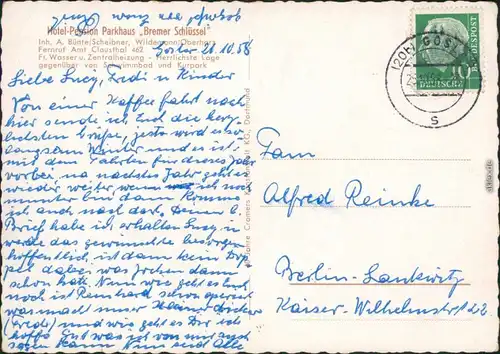 Hotel-Pension Parkhaus „Bremer Schlüssel"
Inh. A. Bünte/Scheibner, Wildemann/Oberharz
Fernruf Amt Clausthal 462
Fl. Wasser u. Zentralheizung - Herrlichste Lage
gegenüber von Schwimmbad und Kurpark
20.10.58
Liebe Lucy, Fredi u Kinder
Von einer Kaffee fahrt nach
hier sende ich Euch die herz-
lichsten Grüße, jetzt wird es so
langsam Winter und es ist
mit dem Fahrten für dieses Jahr
vorbei na nächstes Jahr geht es
wieder weiter wenn ich
munter bin dann komme
ich auch nach dort. Deinen l.
Brief habe ich erhalten Lucy, ich
werde das gewünschte besorgen
hoffentlich ist dann kein
dabei was dann
schon hatt. Nun wie geht es Euch
noch ist Reinhard schon operiert
was macht unser
(Fredi) und wie geht es Dir ich
hoffe Gut was von mir auch
sagen kann Nun seid Alle
(20b) GOSLAR
s
DEUTSCHE BUNDESPOST
10
Fam
Alfred Reinke
Berlin-Lankwitz
Kaiser-Wilhelmstr
Cramers Kunstanstalt KG., Dortmund